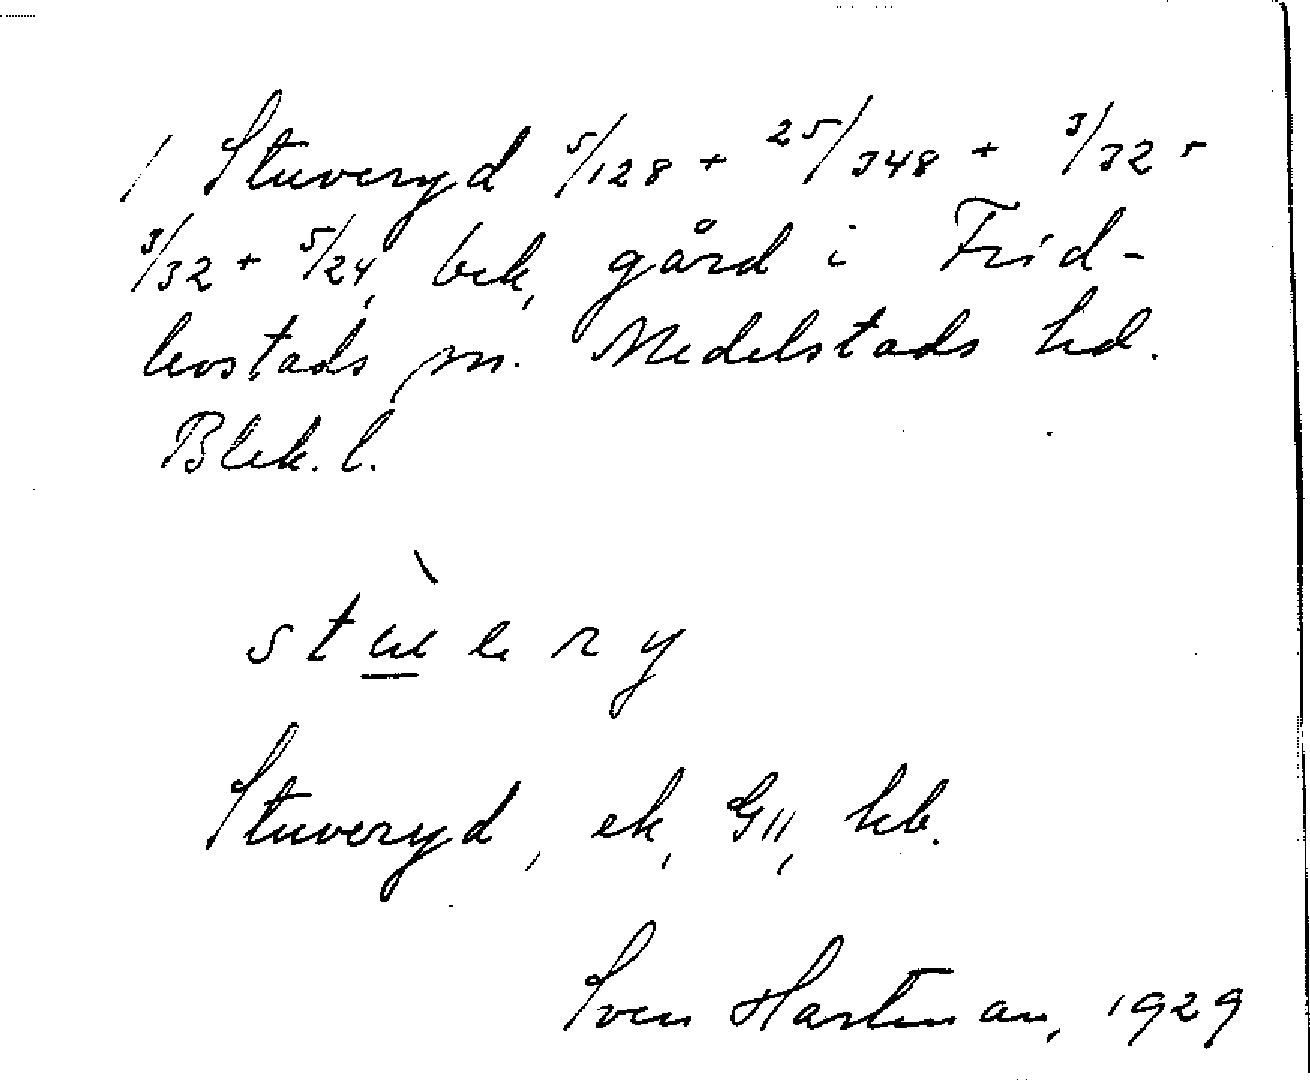 1 Stuveryd 5/128 + 25/348 + 3/32 +
3/32 + 5/24, bek, gård i Frid-
levstads sn. Medelstads hd.
Blek. l.
stùery
Stuveryd, ek, GII, kb.
Sven Hartman, 1929